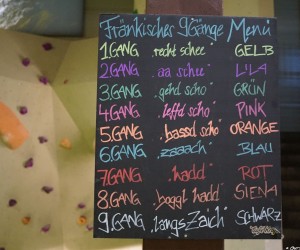 Fränkisches 9 Gänge Menü
1. GANG „recht schee" GELB
2. GANG „aa schee" LILA
3. GANG „gehd scho" GRÜN
4. GANG „leffd scho" PINK
5. GANG „bassd scho" ORANGE
6. GANG „zaaach" BLAU
7. GANG „hadd" ROT
8. GANG „boggl hadd" SIENA
9. GANG „langs Zaich" SCHWARZ